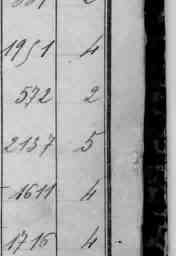 1951 4
572 2
2137 5
1611 4
1716 4